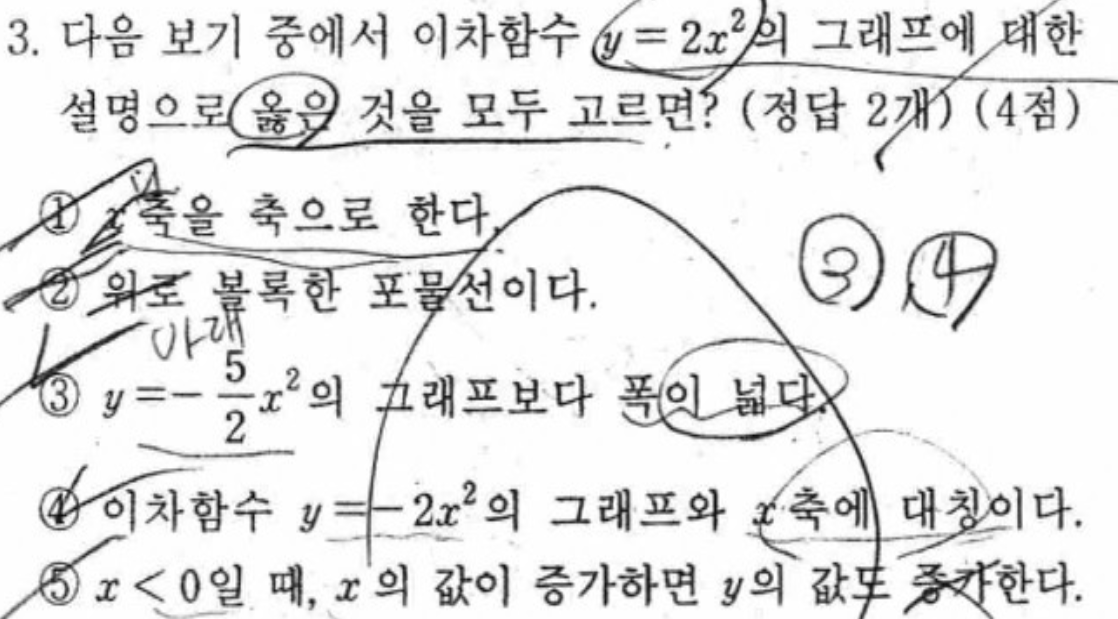 3. 다음 보기 중에서 이차함수 y = 2x²의 그래프에 대한
설명으로 옳은 것을 모두 고르면? (정답 2개) (4점)
① x축을 축으로 한다.
y
② 위로 볼록한 포물선이다.
아래
③ ④
③ y = -5/2 x²의 그래프보다 폭이 넓다.
④ 이차함수 y = -2x²의 그래프와 x축에 대칭이다.
⑤ x < 0일 때, x의 값이 증가하면 y의 값도 증가한다.